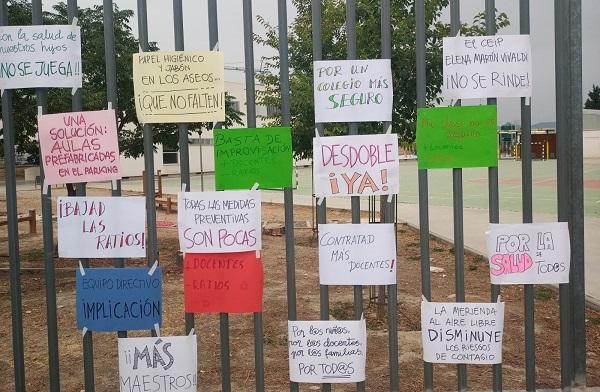 Con la salud de
nuestros hijos
¡NO SE JUEGA!!
PAPEL HIGIÉNICO
Y JABÓN
EN LOS ASEOS...
¡QUE NO FALTEN!
POR UN
COLEGIO MÁS
SEGURO
EL CEIP
ELENA MARTÍN VIVALDI
¡NO SE RINDE!
UNA
SOLUCIÓN:
AULAS
PREFABRICADAS
EN EL PARKING
BASTA DE
IMPROVISACIÓN
- RATIOS
DESDOBLE
¡YA!
¡BAJAD
LAS
RATIOS!
TODAS LAS MEDIDAS
PREVENTIVAS
SON POCAS
CONTRATAD
MÁS
DOCENTES!
POR LA
SALUD DE
TOD@S
EQUIPO DIRECTIVO
IMPLICACIÓN
+ DOCENTES
- RATIOS
¡¡MÁS
MAESTROS!!
Por los niñ@s,
por los docentes,
por las familias,
POR TOD@S
LA MERIENDA
AL AIRE LIBRE
DISMINUYE
LOS RIESGOS
DE CONTAGIO